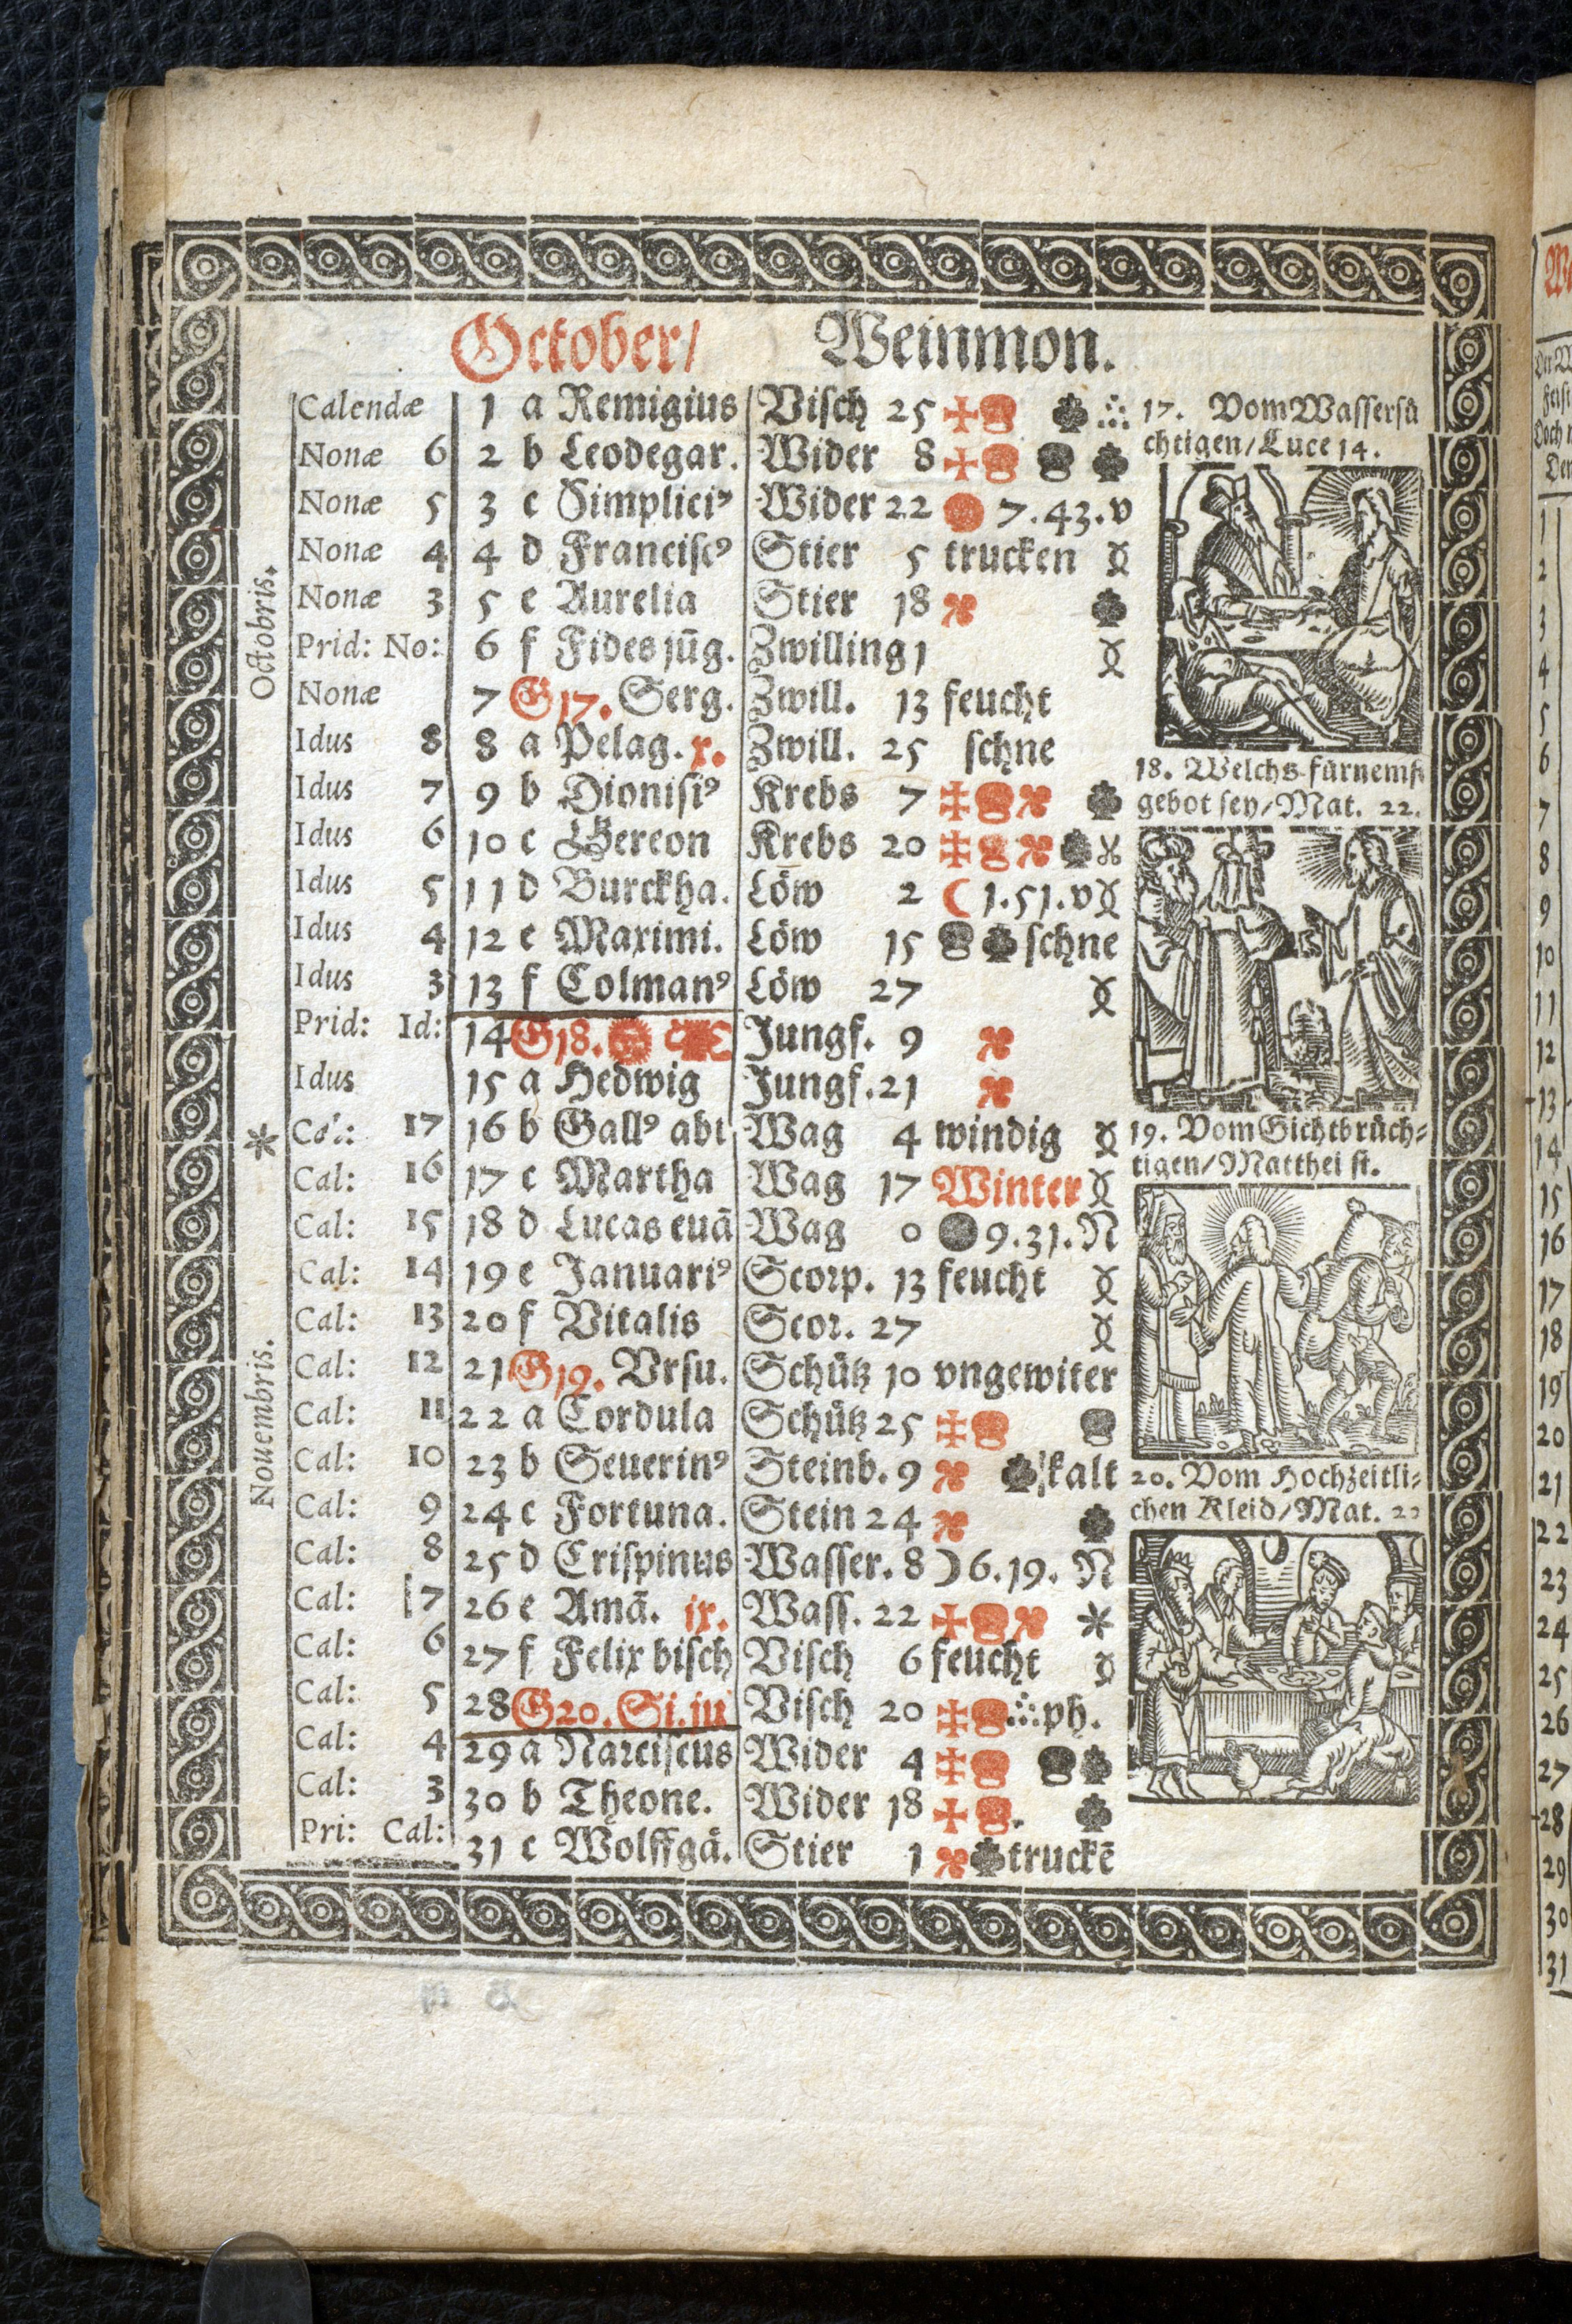 October/ Weinmon.
Octobris.
Nouembris.
Calendæ 1 a Remigius Visch 25
Nonæ 6 2 b Leodegar. Wider 8
Nonæ 5 3 c Simpliciꝰ Wider 22 7.43.v
Nonæ 4 4 d Franciscꝰ Stier 5 trucken
Nonæ 3 5 e Aurelia Stier 18
Prid: No: 6 f Fides jūg. Zwilling 1
Nonæ 7 G17. Serg. Zwill. 13 feucht
Idus 8 8 a Pelag. x. Zwill. 25 schne
Idus 7 9 b Dionisiꝰ Krebs 7
Idus 6 10 c Gereon Krebs 20
Idus 5 11 d Burckha. Löw 2 ☾ 1.51.v
Idus 4 12 e Maximi. Löw 15 schne
Idus 3 13 f Colmanꝰ Löw 27
Prid: Id: 14 G18. Jungf. 9
Idus 15 a Hedwig Jungf. 21
Cal: 17 16 b Gallꝰ abt Wag 4 windig
Cal: 16 17 c Martha Wag 17 Winter
Cal: 15 18 d Lucas euā Wag 0 9.31.N
Cal: 14 19 e Januariꝰ Scorp. 13 feucht
Cal: 13 20 f Vitalis Scor. 27
Cal: 12 21 G19. Vrsu. Schütz 10 vngewiter
Cal: 11 22 a Cordula Schütz 25
Cal: 10 23 b Seuerinꝰ Steinb. 9 kalt
Cal: 9 24 c Fortuna. Stein 24
Cal: 8 25 d Crispinus Wasser. 8 ☽ 6.19. N
Cal: 7 26 e Amā. ix. Wass. 22
Cal: 6 27 f Felix bisch Visch 6 feucht
Cal: 5 28 G20. Si. ju Visch 20 ph.
Cal: 4 29 a Narciscus Wider 4
Cal: 3 30 b Theone. Wider 18
Pri: Cal: 31 c Wolffgā. Stier 1 truckē
17. Vom Wassersü
chtigen/Luce 14.
18. Welchs fürnemst
gebot sey/Mat. 22.
19. Vom Gichtbrüch=
tigen/Matthei
20. Vom Hochzeitli=
chen Kleid/Mat. 22